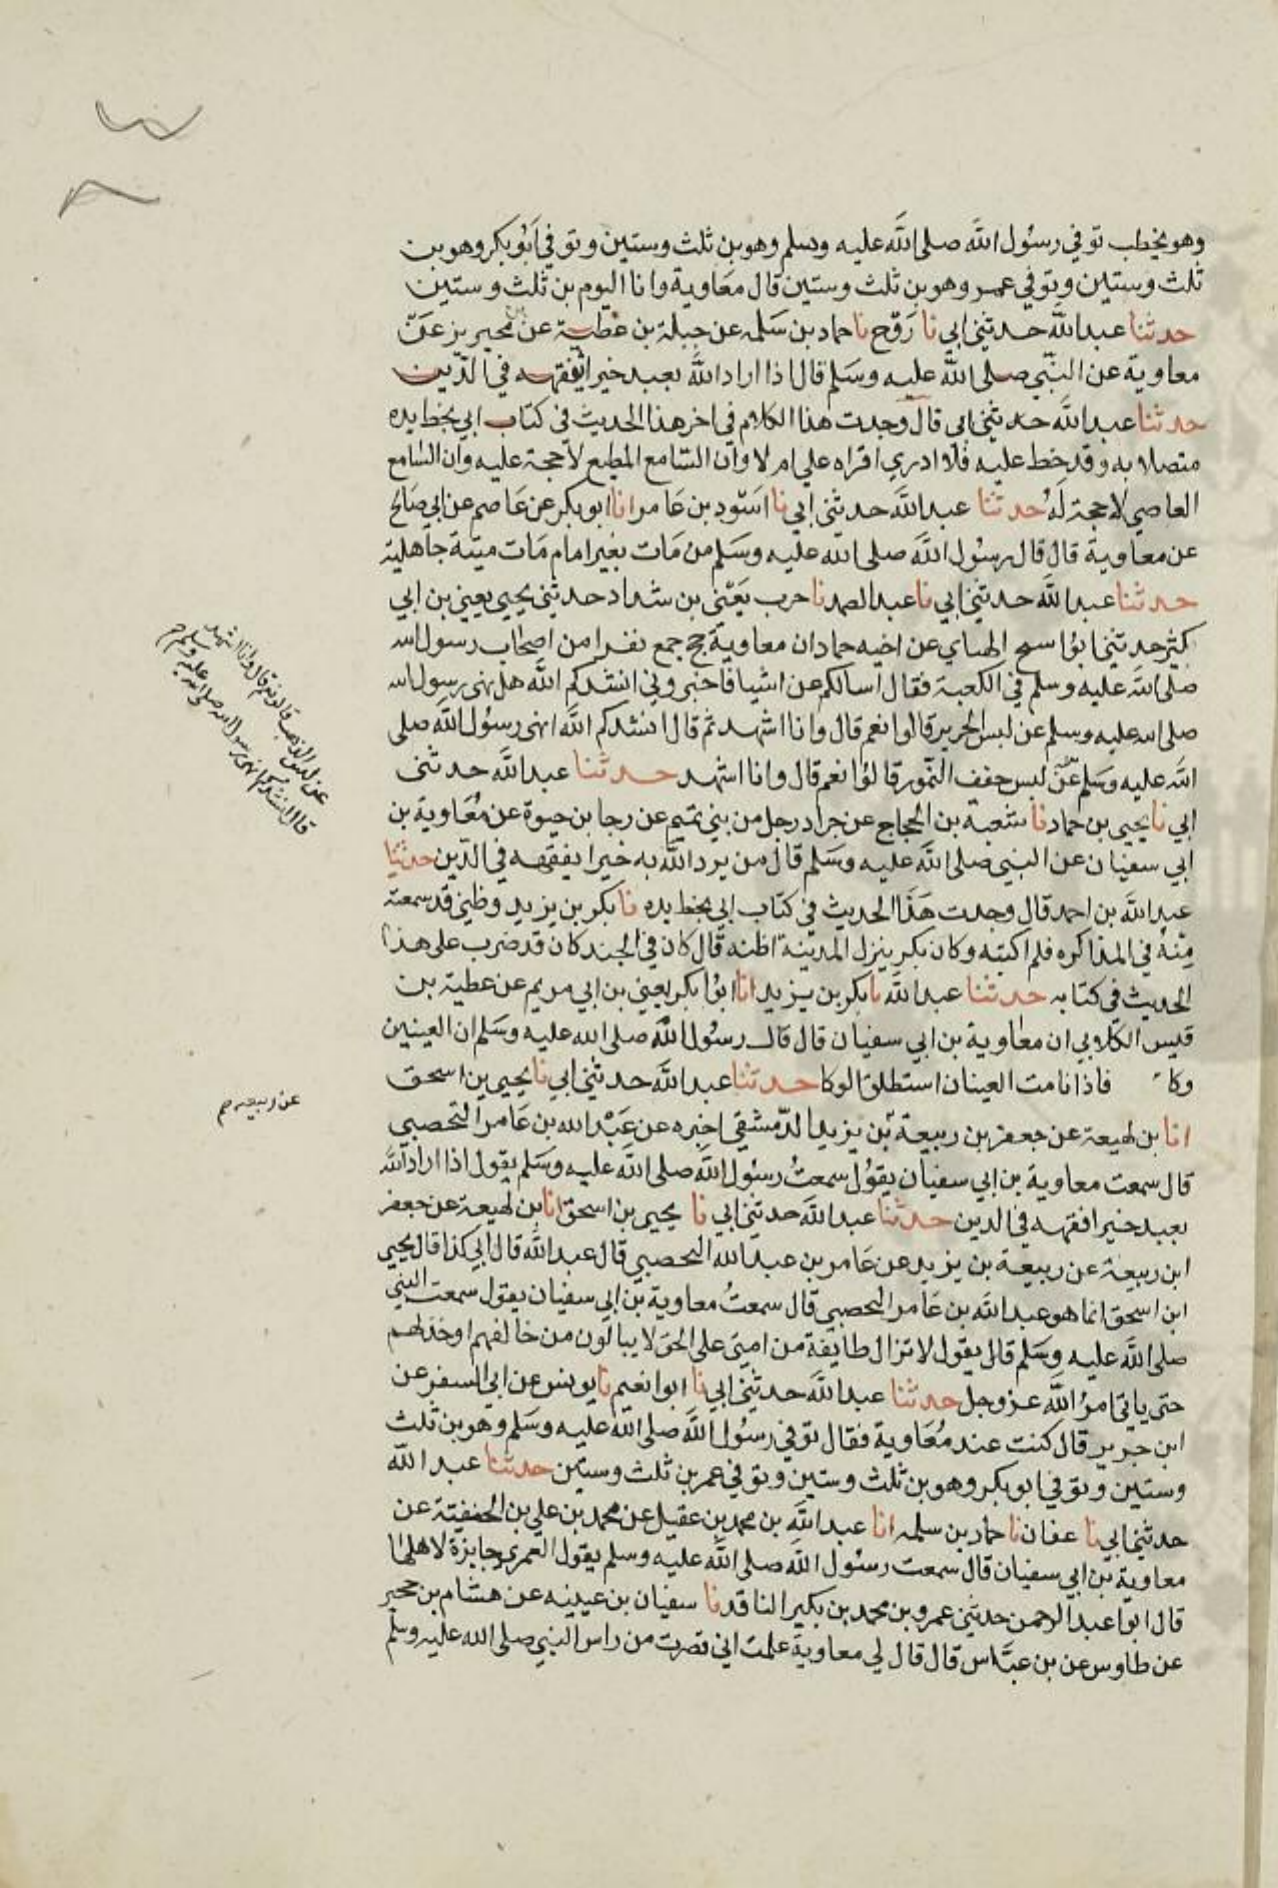 وهو يخطب توفي رسول الله صلى الله عليه وسلم وهو بن ثلث وستين وتوفي ابو بكر وهو بن
ثلث وستين وتوفي عمر وهو بن ثلث وستين قال معاوية وانا اليوم بن ثلث وستين
حدثنا عبد الله حدثني ابي نا روح نا حماد بن سلمه عن جبلة بن عطية عن محيريز عن
معاوية عن النبي صلى الله عليه وسلم قال اذا اراد الله بعبد خيرا يفقهه في الدين
حدثنا عبد الله حدثني ابي قال وجدت هذا الكلام في اخر هذا الحديث في كتاب ابي بخط يده
متصلا به وقد خط عليه فلا ادري اقراه علي ام لا وان السامع المطيع لا حجة عليه وان السامع
العاصي لا حجة له حدثنا عبد الله حدثني ابي نا اسود بن عامر انا ابو بكر عن عاصم عن ابي صالح
عن معاوية قال قال رسول الله صلى الله عليه وسلم من مات بغير امام مات ميتة جاهلية
حدثنا عبد الله حدثني ابي نا عبد الصمد نا حرب يعني بن شداد حدثني يحيى يعني بن ابي
كثير حدثني ابوا سيح الهناي عن اخيه حمادان معاوية حج جمع نفرا من اصحاب رسول الله
صلى الله عليه وسلم في الكعبة فقال اسالكم عن اشيا فاخبروني انشدكم الله هل نهى رسول الله
صلى الله عليه وسلم عن لبس الحرير قالوا نعم قال وانا اشهد ثم قال انشدكم الله انهى رسول الله صلى
الله عليه وسلم عن لبس حفف النمور قالوا نعم قال وانا اشهد حدثنا عبد الله حدثني
ابي نا يحيى بن حماد نا شعبة بن الحجاج عن جراد رجل من بني تميم عن رجا بن حيوة عن معاوية بن
ابي سفيان عن النبي صلى الله عليه وسلم قال من يرد الله به خيرا يفقهه في الدين حدثنا
عبد الله بن احمد قال وجدت هذا الحديث في كتاب ابي بخط يده نا بكر بن يزيد وظني قد سمعته
منه في المذاكره فلم اكتبه وكان بكر ينزل المدينة اظنه قال كان في الجند كان قد ضرب على هذا
الحديث في كتابه حدثنا عبد الله نا بكر بن يزيد انا ابوا بكر يعني بن ابي مريم عن عطية بن
قيس الكلابي ان معاوية بن ابي سفيان قال قال رسول الله صلى الله عليه وسلم ان العينين
وكا فاذا نامت العينان استطلق الوكا حدثنا عبد الله حدثني ابي نا يحيى بن اسحق
انا بن لهيعة عن جعفر بن ربيعة بن يزيد الدمشقي اخبره عن عبد الله بن عامر اليحصبي
قال سمعت معاوية بن ابي سفيان يقول سمعت رسول الله صلى الله عليه وسلم يقول اذا اراد الله
بعبد خيرا فقهه في الدين حدثنا عبد الله حدثني ابي نا يحيى بن اسحق انا بن لهيعة عن جعفر
ابن ربيعة عن ربيعة بن يزيد عن عامر بن عبد الله اليحصبي قال عبد الله قال ابي كذا قال يحيى
ابن اسحق انما هو عبد الله بن عامر اليحصبي قال سمعت معاوية بن ابي سفيان يقول سمعت النبي
صلى الله عليه وسلم قال يقول لا تزال طايفة من امتي على الحق لا يبالون من خالفهم او خذلهم
حتى ياتي امر الله عز وجل حدثنا عبد الله حدثني ابي نا ابوا نعيم نا يونس عن ابي السفر عن
ابن جرير قال كنت عند معاوية فقال توفي رسول الله صلى الله عليه وسلم وهو بن ثلث
وستين وتوفي ابو بكر وهو بن ثلث وستين وتوفي عمر بن ثلث وستين حدثنا عبد الله
حدثني ابي نا عفان نا حماد بن سلمه انا عبد الله بن محمد بن عقيل عن محمد بن علي بن الحنفية عن
معاوية بن ابي سفيان قال سمعت رسول الله صلى الله عليه وسلم يقول العمرى جايزة لاهلها
قال ابوا عبد الرحمن حدثني عمرو بن محمد بن بكير الناقد نا سفيان بن عيينه عن هشام بن حجير
عن طاوس عن بن عباس قال قال لي معاوية علمت اني قصرت من راس النبي صلى الله عليه وسلم
عن لبس الذهب قالوا نعم قال وانا اشهد
قال انشدكم انهى رسول الله صلى الله عليه وسلم
عن ربيعة صح